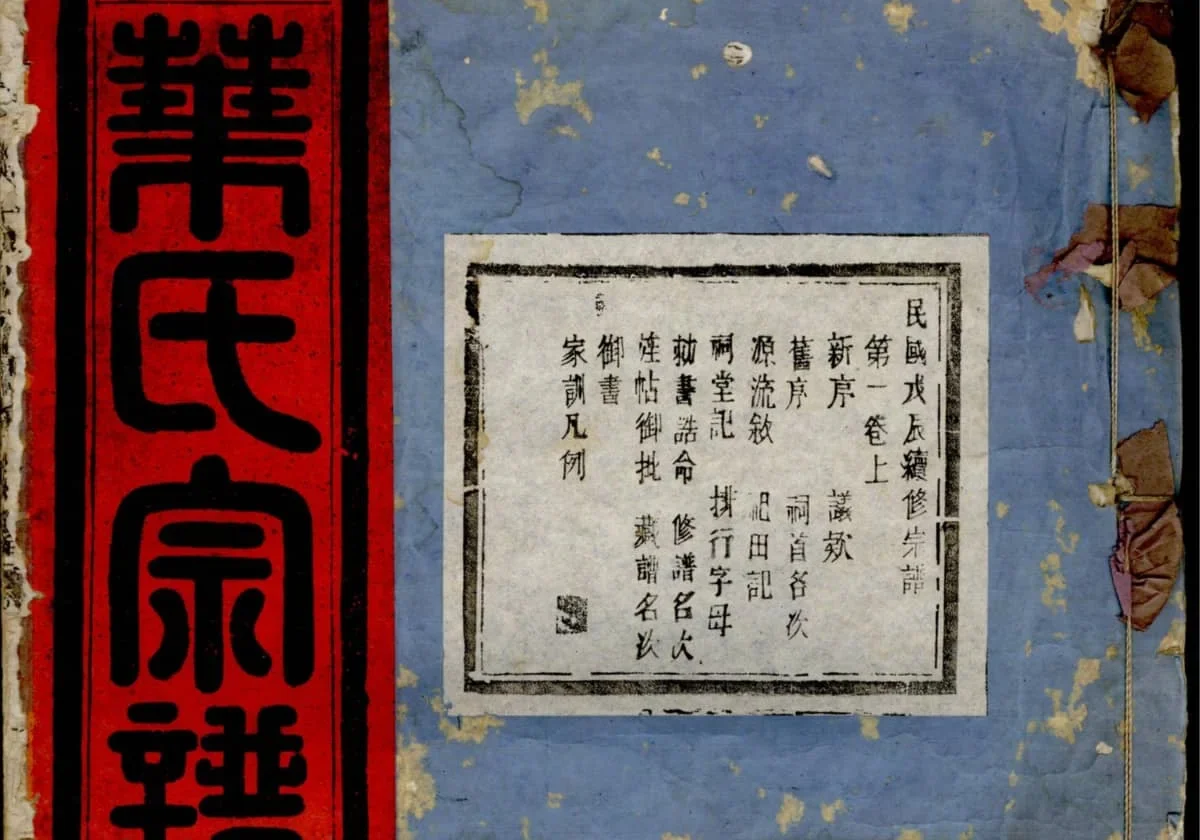 華氏宗譜
民國戊辰續修宗譜
第一卷上
新序 議欵
舊序 祠首名次
源流敘 祀田記
祠堂記 排行字母
勅書誥命 修譜名次
帖御批 藏譜名次
御書
家訓凡例